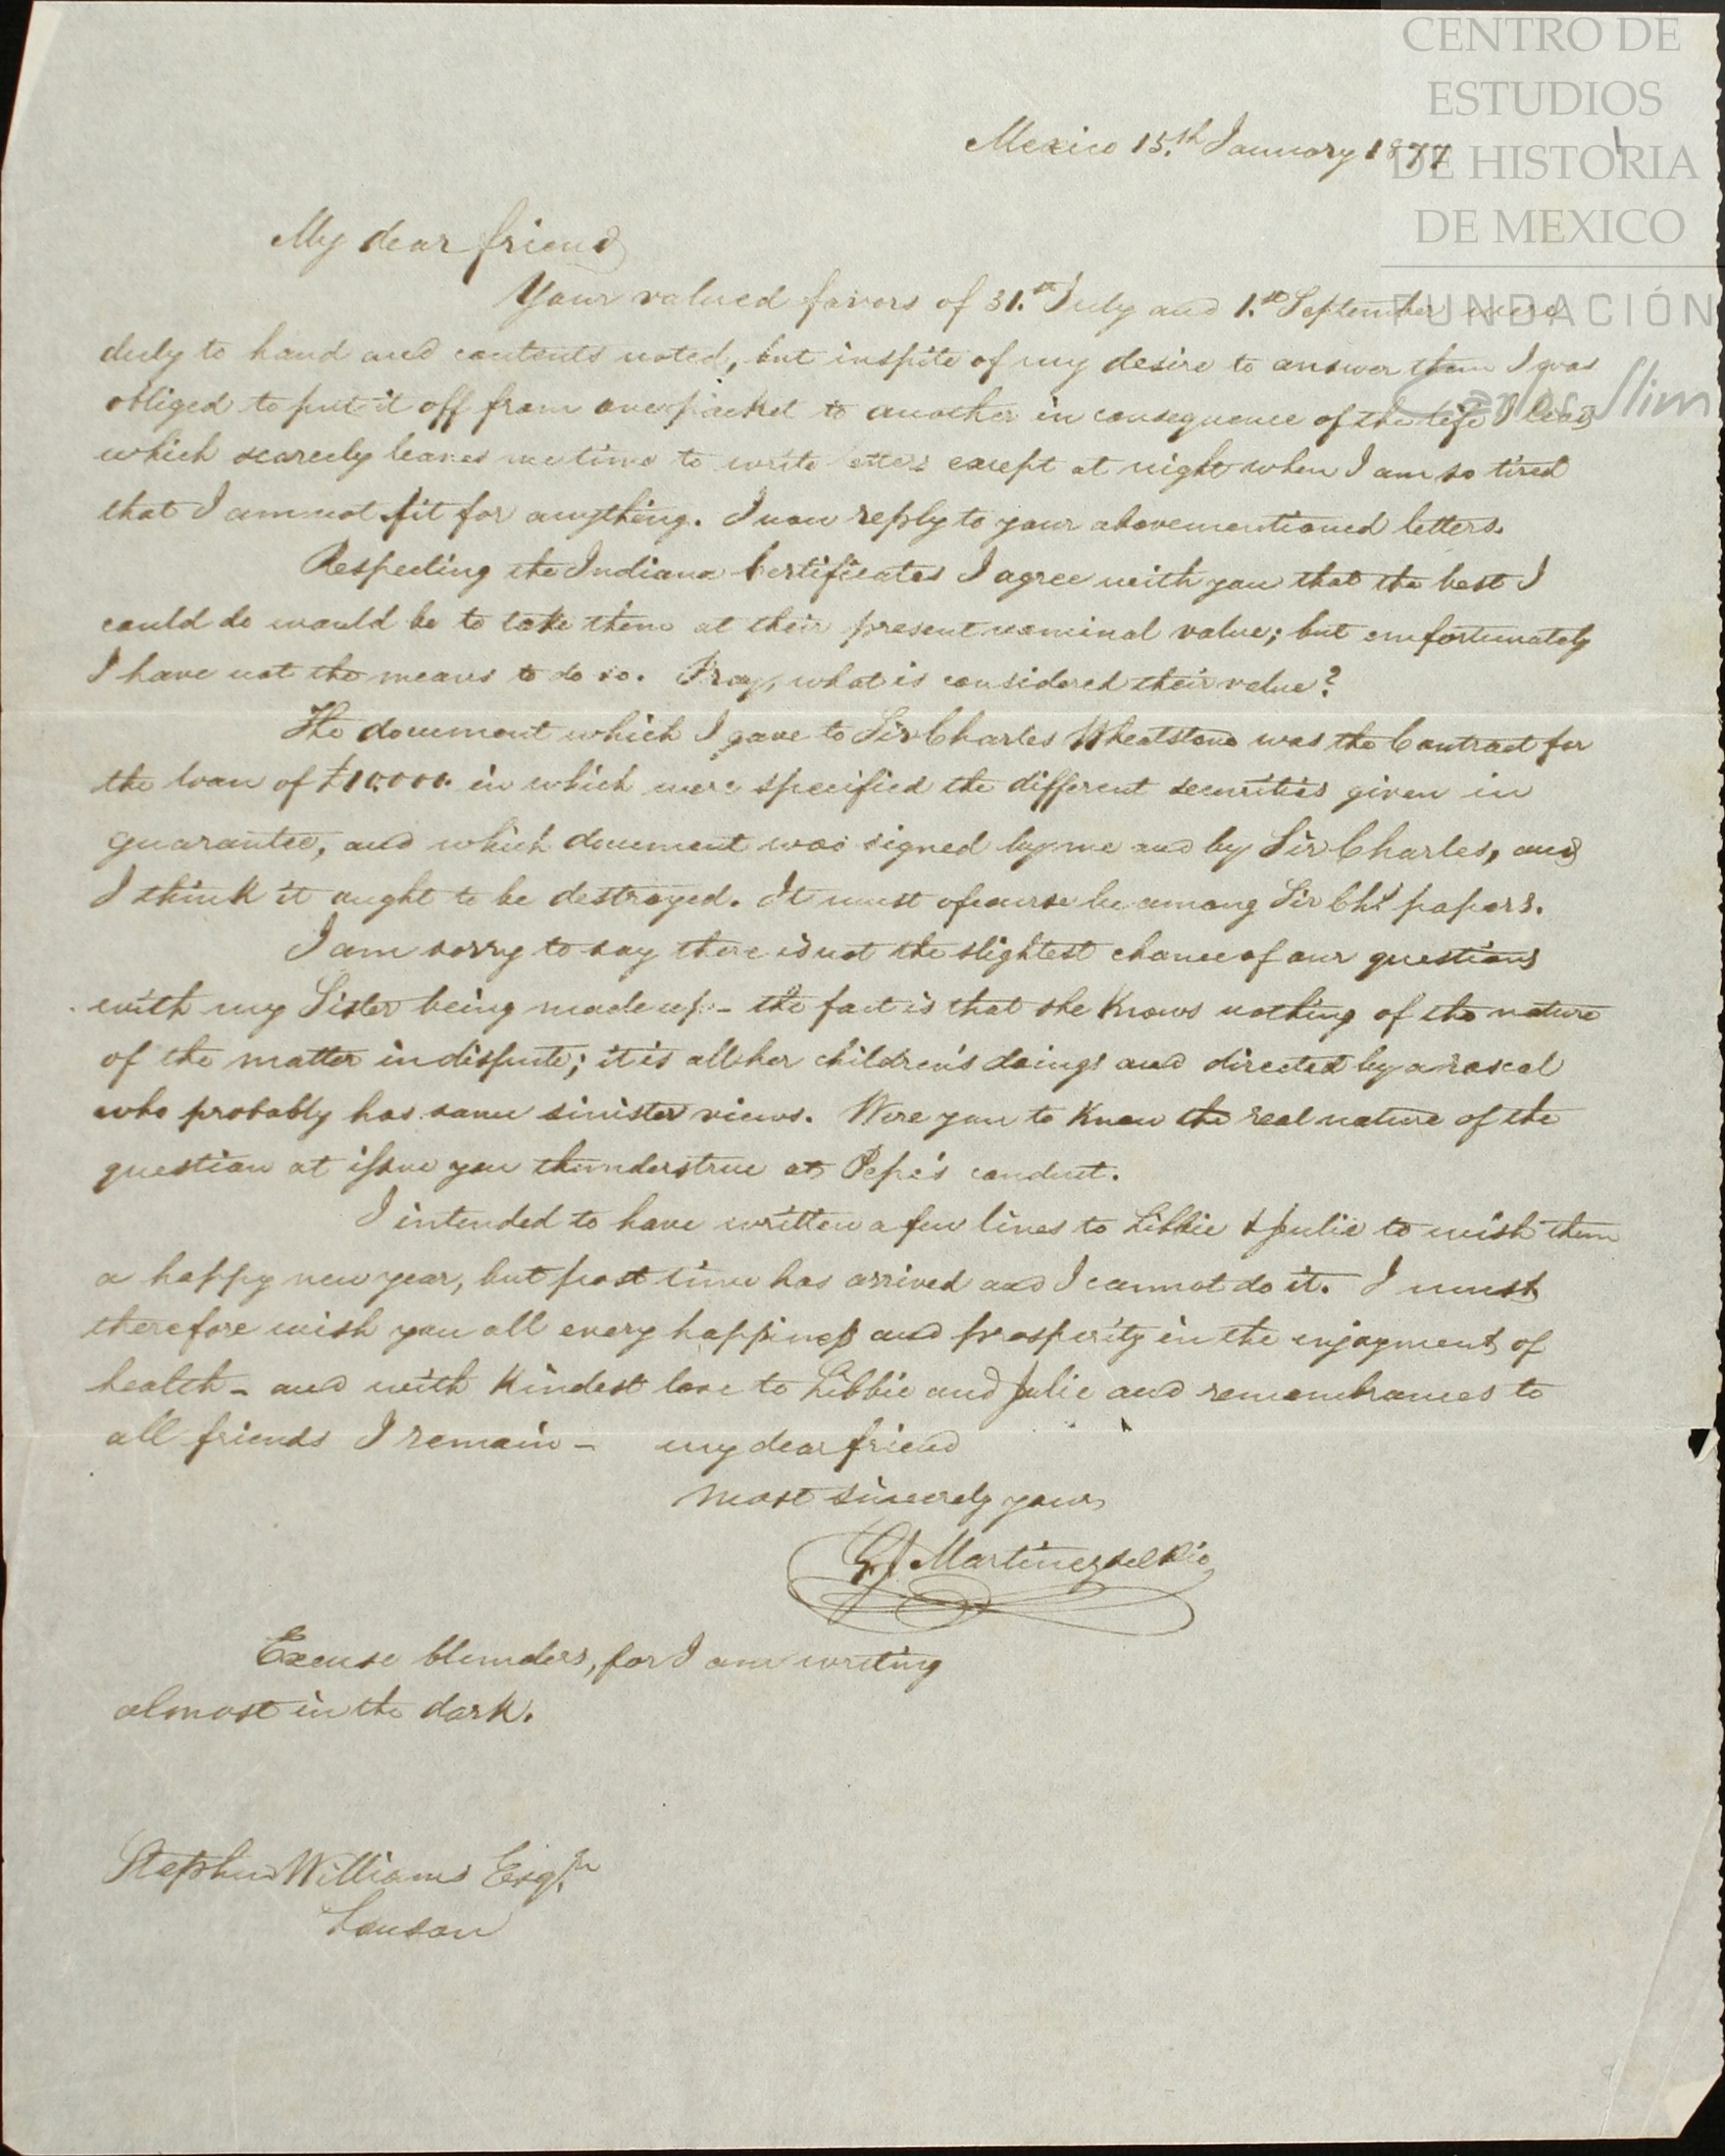 CENTRO DE
ESTUDIOS
DE HISTORIA
DE MEXICO
FUNDACIÓN
Carlos Slim
Mexico 15.th January 1877
My dear friend
Your valued favors of 31.st July and 1.st September were
duly to hand and contents noted, but inspite of my desire to answer them I was
obliged to put it off from one packet to another in consequence of the life I lead
which scarcely leaves me time to write letters except at night when I am so tired
that I am not fit for anything. I now reply to your abovementioned letters.
Respecting the Indiana Certificates I agree with you that the best I
could do would be to take them at their present nominal value; but unfortunately
I have not the means to do so. Pray, what is considered their value?
The document which I gave to Sir Charles Wheatstone was the Contract for
the loan of £10.000. in which were specified the different securities given in
guarantee, and which document was signed by me and by Sir Charles, and
I think it ought to be destroyed. It must ofcourse be among Sir Chs. papers.
I am sorry to say there is not the slightest chance of our questions
with my Sister being made up - the fact is that she knows nothing of the nature
of the matter in dispute; it is all her children's doings and directed by a rascal
who probably has some sinister views. Were you to know the real nature of the
question at issue you thunderstruc at Pepe's conduct.
I intended to have written a few lines to Libbie & Julie to wish them
a happy new year, but post time has arrived and I cannot do it. I must
therefore wish you all every happiness and prosperity in the enjoyment of
health - and with kindest love to Libbie and Julie and remembrances to
all friends I remain - my dear friend
most sincerely yours
Martinez del Rio
Excuse blunders, for I am writing
almost in the dark.
Stephen Williams Esqr.
London